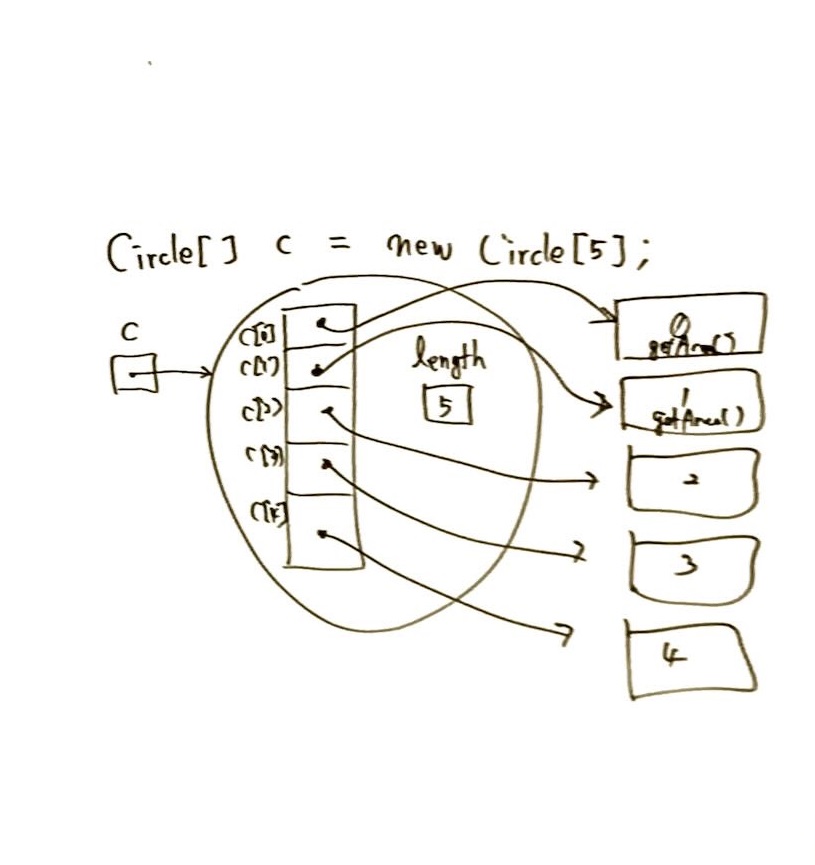 Circle[] c = new Circle[5];
c
c[0]
c[1]
c[2]
c[3]
c[4]
length
5
0
getArea()
1
getArea()
2
3
4